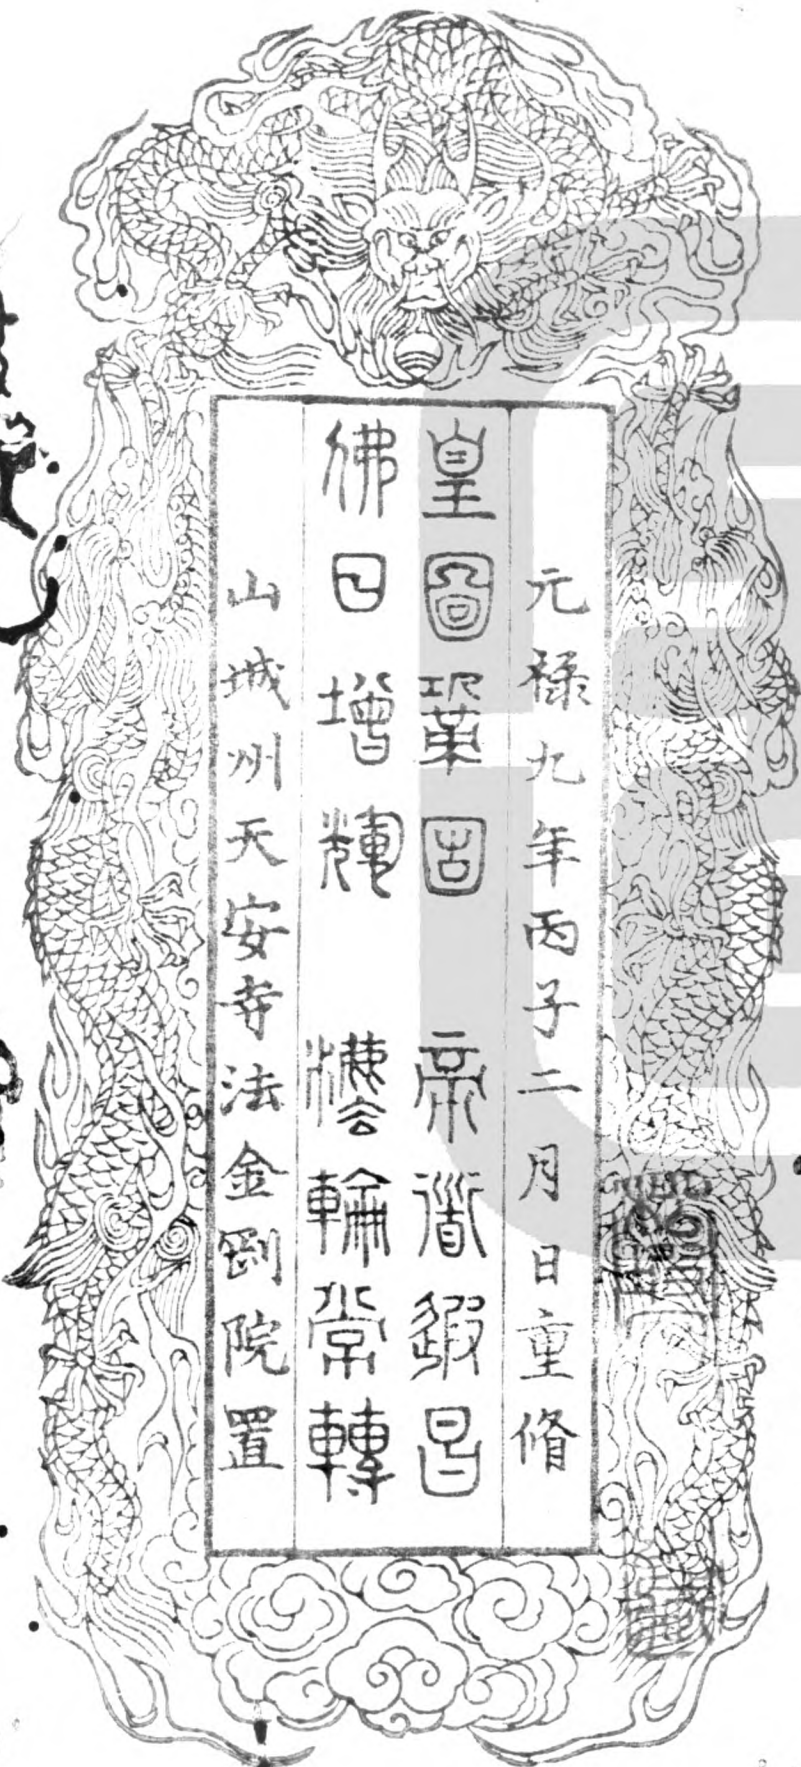 元祿九年丙子二月日重脩
皇圖鞏固 帝道遐昌
佛日增輝 法輪常轉
山城州天安寺法金剛院置